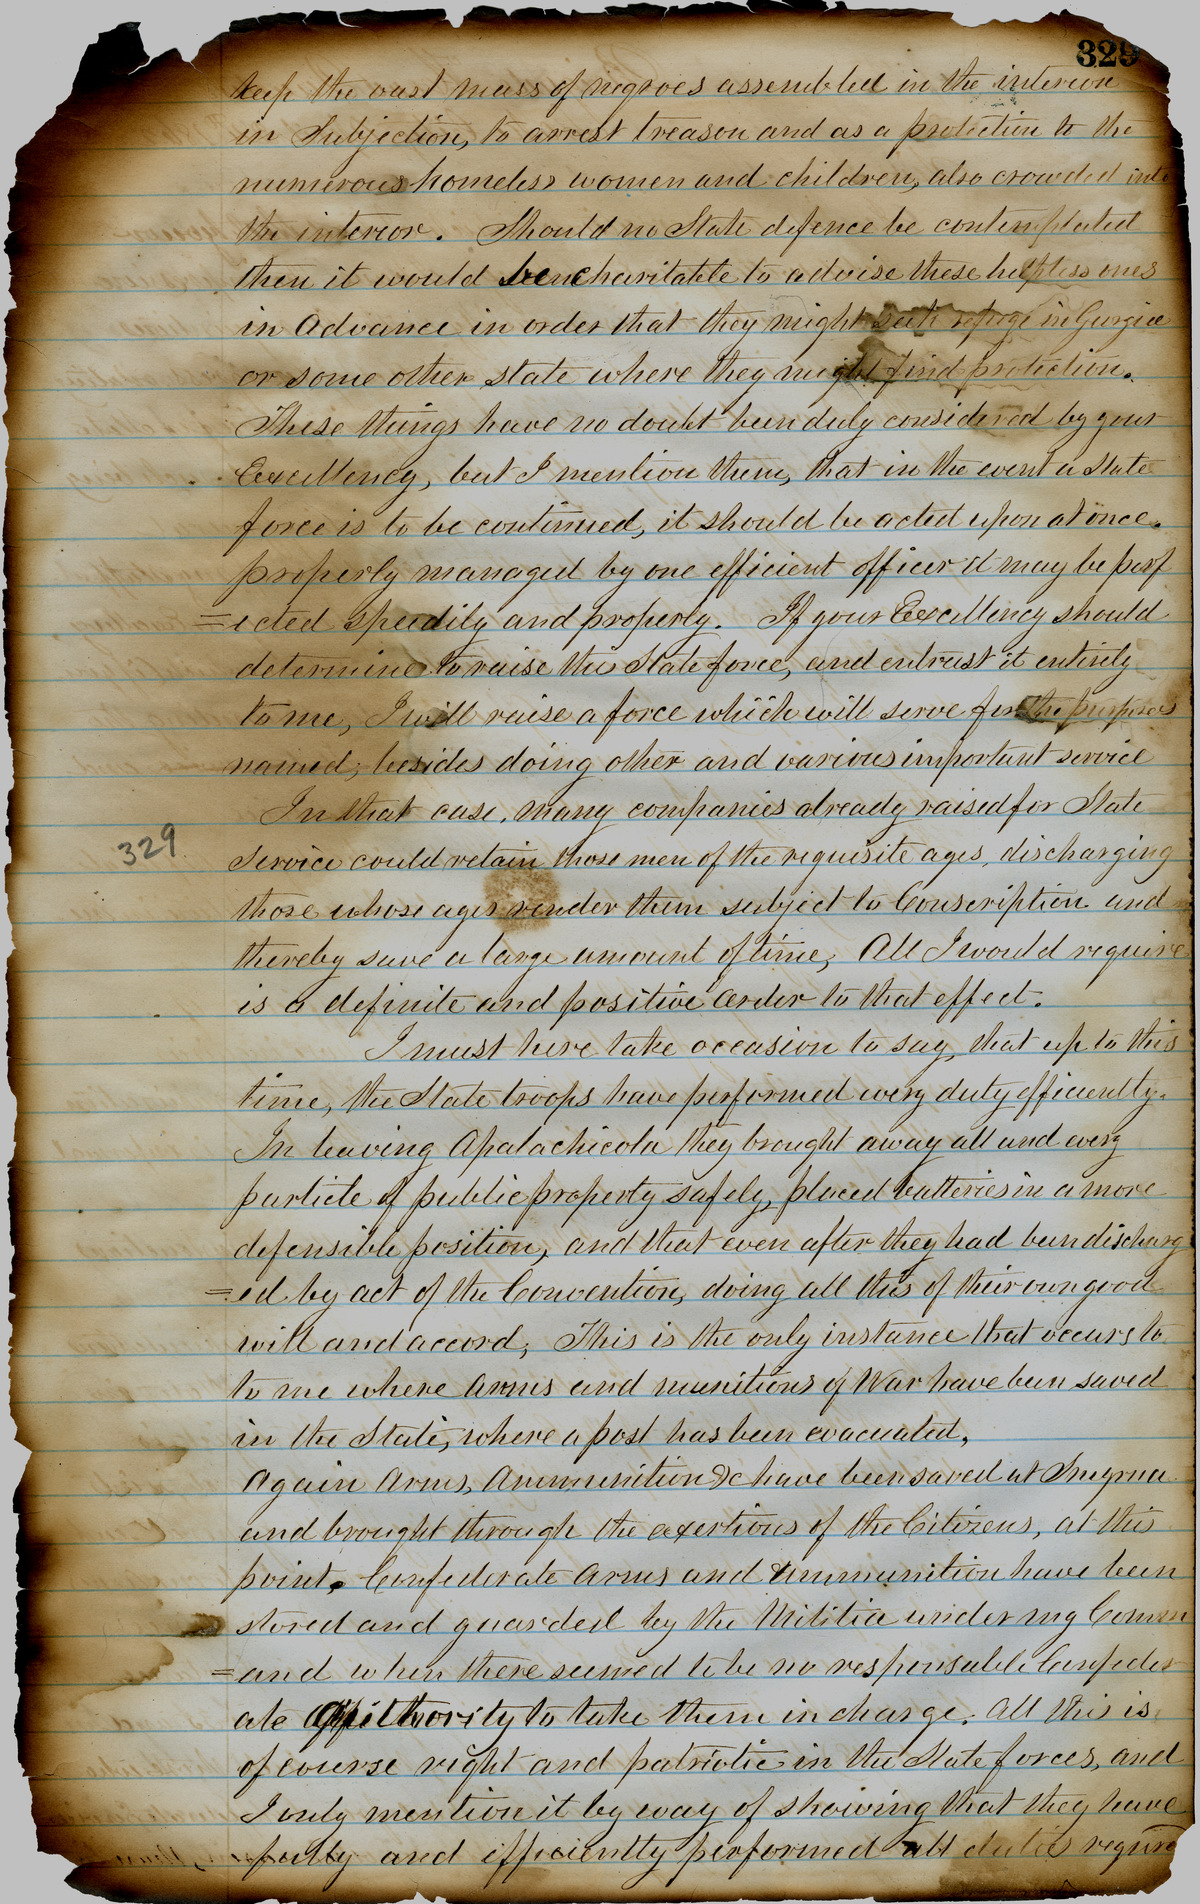 329
keep the vast mass of negroes assembled in the interior
in Subjection, to arrest treason and as a protection to the
numerous homeless women and children, also crowded into
the interior. Should no State defence be contemplated
then it would be charitable to advise these helpless ones
in Advance in order that they might seek refuge in Georgia
or some other state where they might find protection.
These things have no doubt been duly considered by your
Excellency, but I mention them, that in the event a State
force is to be continued, it should be acted upon at once.
properly managed by one efficient officer it may be perf
=ected speedily and properly. If your Excellency should
determine to raise this State force, and entrust it entirely
to me, I will raise a force which will serve for the purposes
named, besides doing other and various important service
In that case, many companies already raised for State
329
Service could retain those men of the requisite ages, discharging
those whose ages render them subject to Conscription and
thereby save a large amount of time, All I would require
is a definite and positive order to that effect.
I must here take occasion to say, that up to this
time, the State troops have performed every duty efficiently.
In leaving Apalachicola they brought away all and every
particle of public property safely, placed batteries in a more
defensible position, and that even after they had been discharg
=ed by act of the Convention, doing all this of their own good
will and accord, This is the only instance that occurs to
to me where Arms and munitions of War have been saved
in the State, where a post has been evacuated,
Again Arms, Ammunition &c have been saved at Smyrna
and brought through the exertions of the Citizens, at this
point. Confederate Arms and Ammunition have been
stored and guarded by the Militia under my Comm
=and when there seemed to be no responsible Confeder
ate Authority to take them in charge. All this is
of course right and patriotic in the State forces, and
I only mention it by way of showing that they have
fully and efficiently performed all duties required